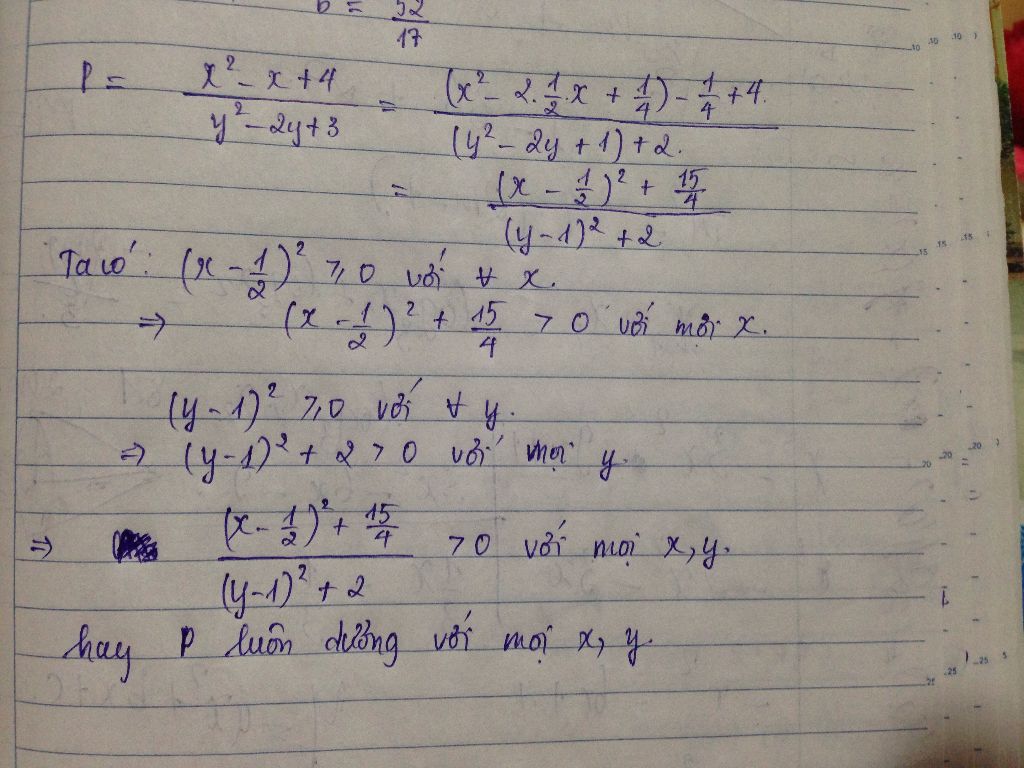 b = 52/17
P = (x² - x + 4)/(y² - 2y + 3) = ((x² - 2.1/2.x + 1/4) - 1/4 + 4.)/((y² - 2y + 1) + 2.)
= ((x - 1/2)² + 15/4)/((y-1)² + 2)
Ta có: (x - 1/2)² ⩾ 0 với ∀ x.
⇒ (x - 1/2)² + 15/4 > 0 với mọi x.
(y - 1)² ⩾ 0 với ∀ y.
⇒ (y-1)² + 2 > 0 với mọi y.
⇒ ((x - 1/2)² + 15/4)/((y-1)² + 2) > 0 với mọi x, y.
hay P luôn dương với mọi x, y.